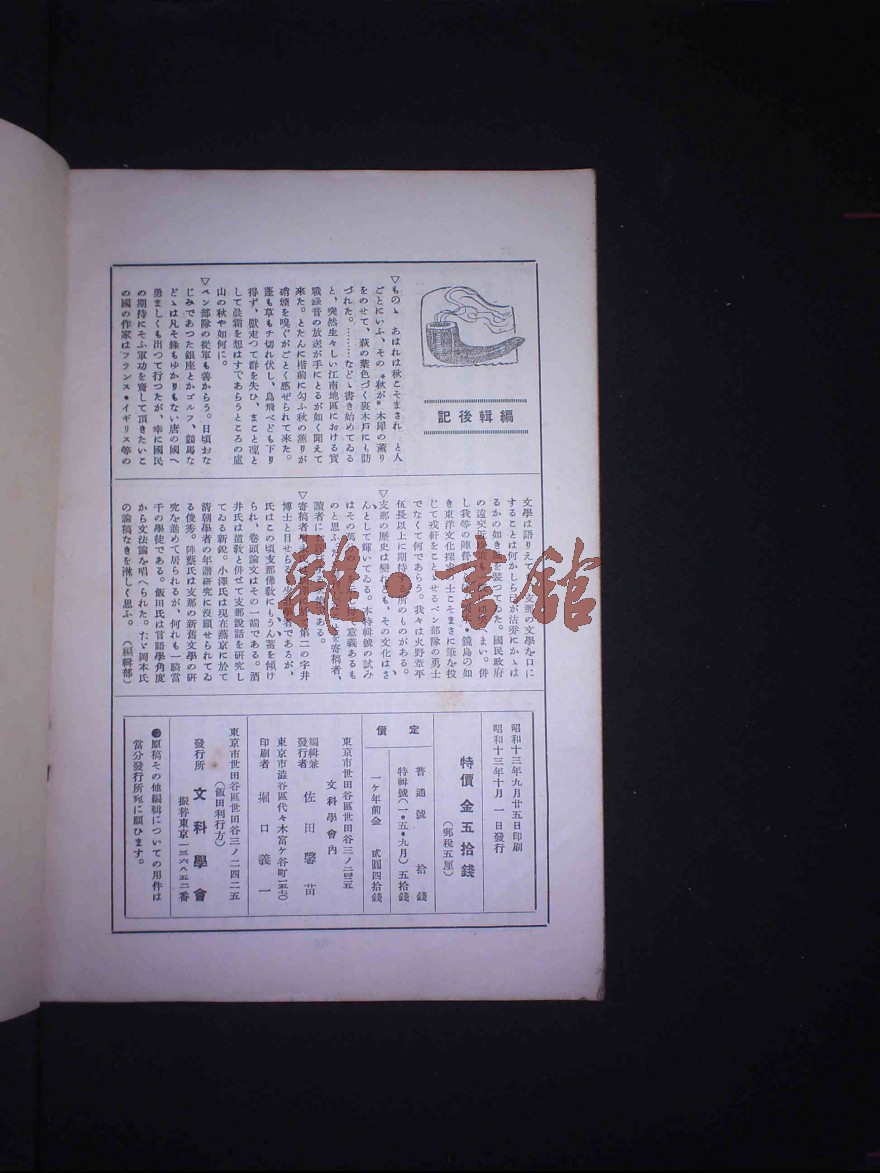 編輯後記
▽ものゝあはれは秋こそまされ、と人
ごとにいふ、その〝秋が〟木犀の薫り
をのせて、萩の葉色づく裏木戸にも訪
づれた。………などゝ書き始めてゐる
と、突然生々しい江南地區における實
戰録音の放送が手にとるが如く聞えて
來た。とたんに楷前に匂ふ秋の薫りが
硝煙を嗅ぐがごとく感ぜられて來た。
蓬も草もチ切れ伏し、鳥飛べども下り
得ず、獸走つて群を失ひ、まこと凜と
して晨霜を想はすであらうところの盧
山の秋や如何に。
▽ペン部隊の從軍も善からう。日頃おな
じみであつた銀座とかゴルフ、競馬な
どゝは凡そ緣もゆかりもない唐の國へ
勇ましくも出つて行つたが、幸に國民
の期待にそふ軍功を齎して頂きたいこ
の國の作家はフランス・イギリス等の
文學は語りえて支那の文學を口に
することは何かしら己が沽券にかゝは
るかの如き裝つてゐた。國民政府
の遠交近まい。併
し我等の陣營鏡島の如
き東洋文化探士こそまさに筆を投
じて戎軒をことゝせるペン部隊の勇士
でなくて何であらう。我々は火野葦平
伍長以上に期待する所のものがある。
▽支那の歴史は變れども、その文化はさ
んとして輝いてゐる。本特輯號の試み
はその萬意義あるも
のと思ふ。を寄稿者、
讀者にある。
▽寄稿者第二の宇井
博士と目せら學者であるが、
氏はこの頃支那佛敎にもうん蓄を傾け
られ、卷頭論文はその一端である。酒
井氏は道敎と併せて支那說話を研究し
てゐる新銳。小澤氏は現在燕京に於て
清朝學者の年譜研究に沒頭せられてゐ
る俊秀。陳蔡氏は支那の新舊文學の研
究を進めて居られるが、何れも一騎當
千の學徒である。飯田氏は言語學角度
から文法論を唱へられた。たゞ岡本氏
の論稿なきを淋しく思ふ。（編輯部）
昭和十三年九月廿五日印刷
昭和十三年十月一日發行
特價 金五拾錢
（郵稅五厘）
定價
普通號 拾錢
特輯號（一・五・九月）五拾錢
一ケ年前金 貳圓四拾錢
東京市世田谷區世田谷三ノ二四二五
文科學會內
編輯兼發行者 佐田馨苗
東京市澁谷區代々木富ケ谷町一五七〇
印刷者 堀口義一
東京市世田谷區世田谷三ノ二四二五
（飯田利行方）
發行所 文科學會
振替東京一三六八五二番
◉原稿その他編輯についての用件は
當分發行所宛に願ひます。
雜・書館